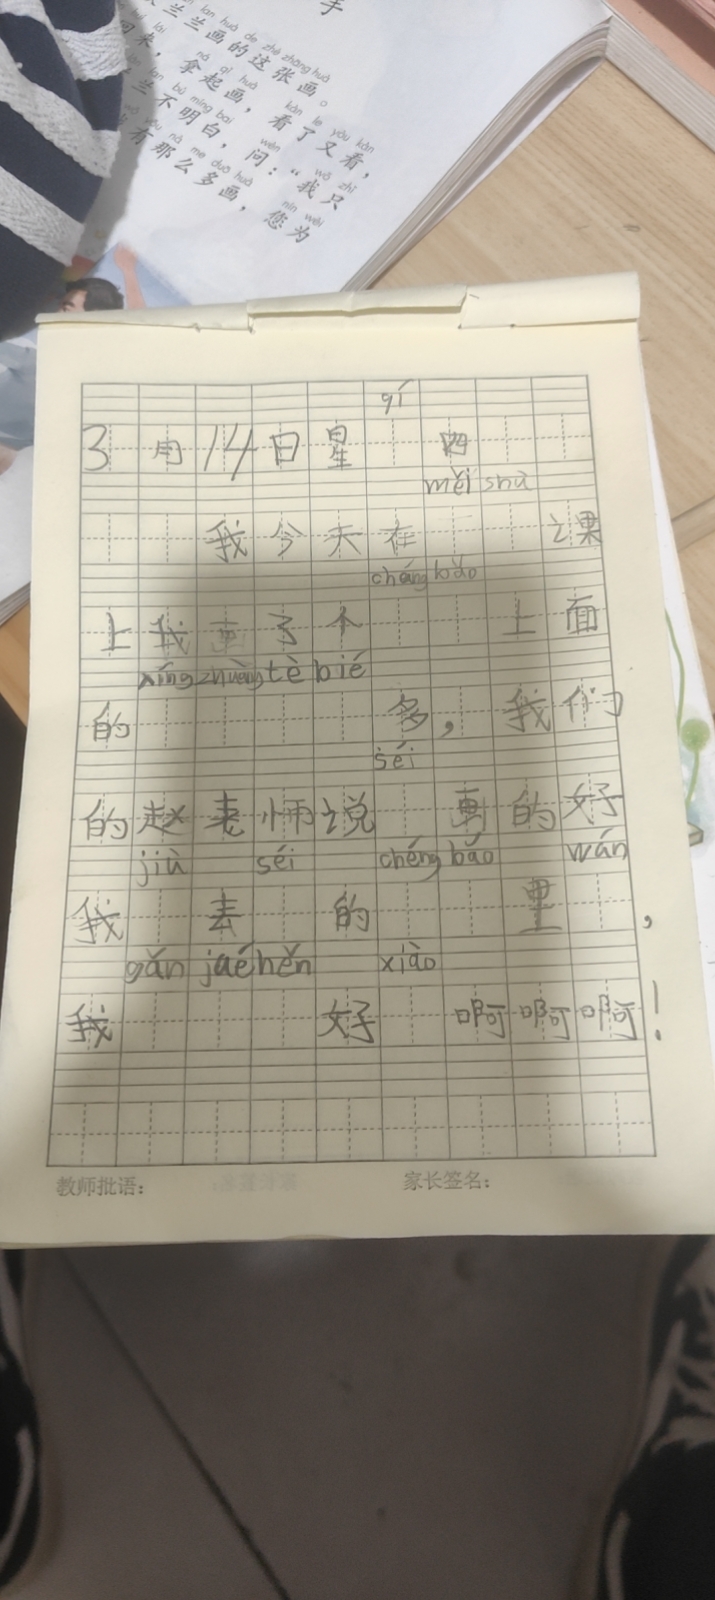 手
lán huà de zhè zhāng huà
兰兰画的这张画。
回来，拿起画，看了又看，
ná qǐ huà kàn le yòu kàn
bù míng bai wèn wǒ zhǐ
兰不明白，问：“我只
yǒu nà me duō huà nín wèi
有那么多画，您为
qí
3月14日星 四
měi shù
我今天在 课
chéng bǎo
上我画了个 上面
xíng zhuàng tè bié
的 多，我们
séi
的赵老师说 画的好
jiù séi chéng bǎo wán
我 去 的 里 ，
gǎn jaé hěn xiào
我 好 啊啊啊！
教师批语： 家长签名：